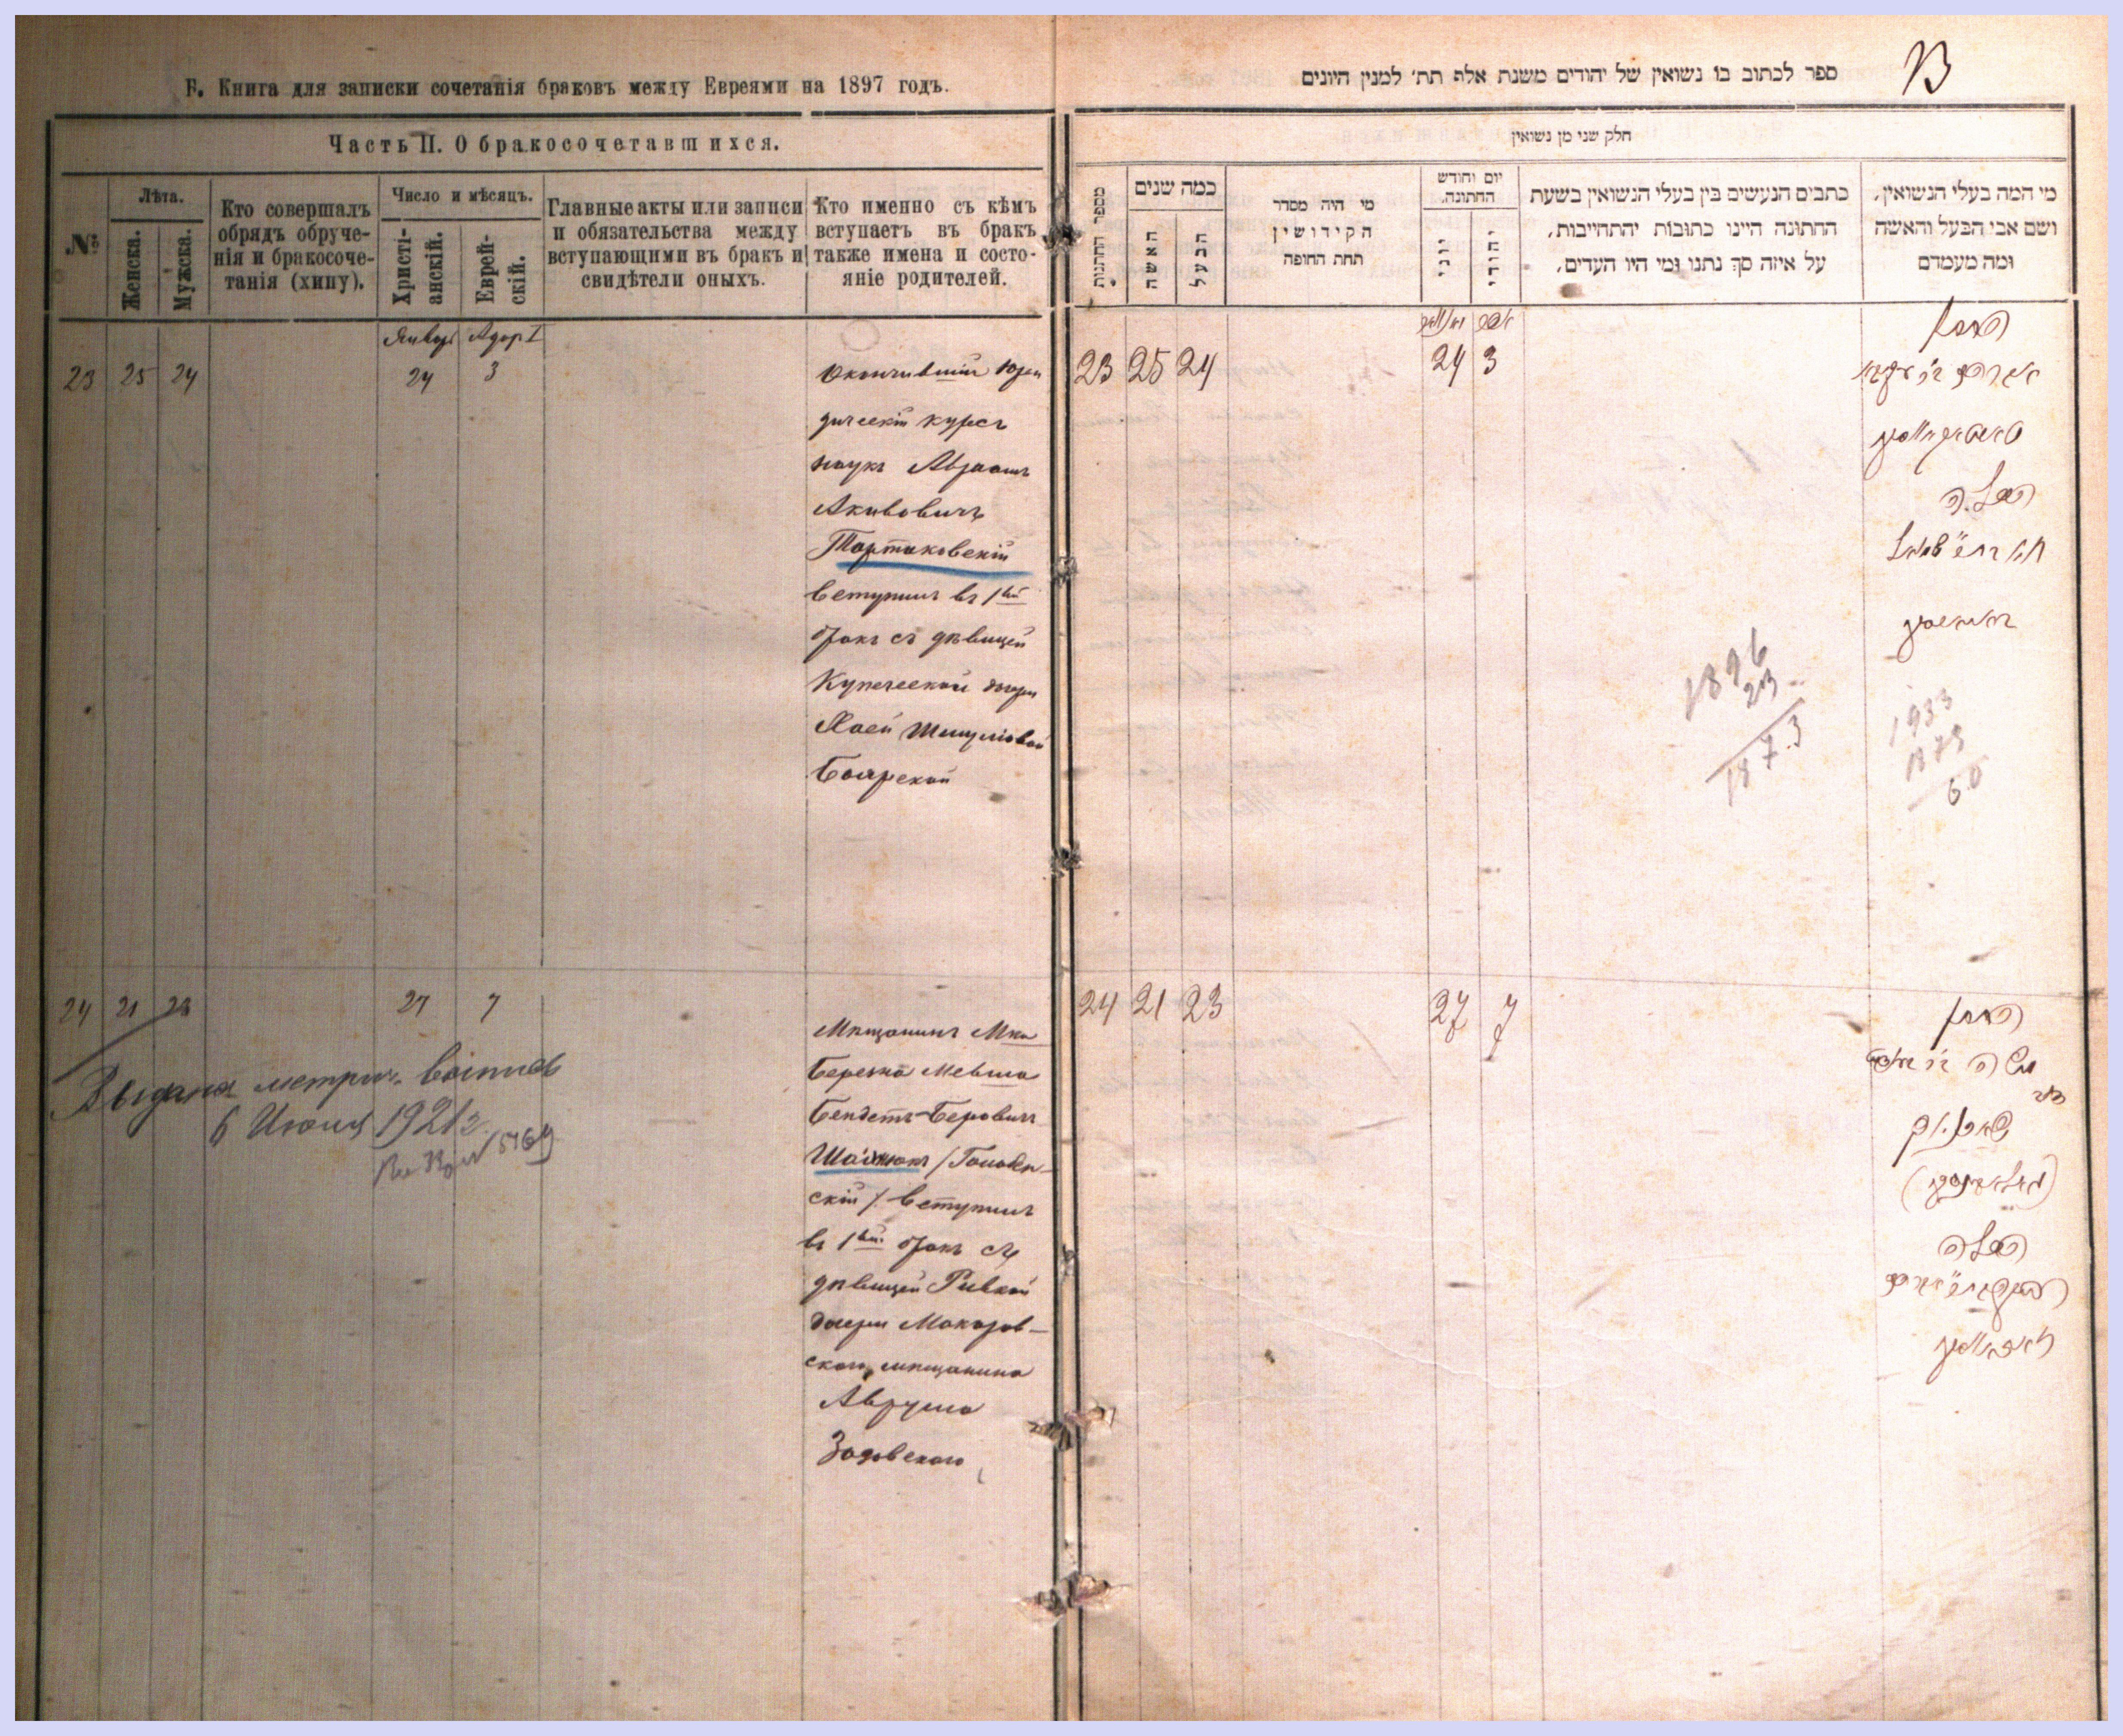 Б. Книга для записки сочетанія браковъ между Евреями на 1897 годъ.
Часть II. О бракосочетавшихся.
№
Лѣта.
Женска.
Мужска.
Кто совершалъ
обрядъ обруче-
нія и бракосоче-
танія (хипу).
Число и мѣсяцъ.
Христі-
анскій.
Еврей-
скій.
Главные акты или записи
и обязательства между
вступающими въ бракъ и
свидѣтели оныхъ.
Кто именно съ кѣмъ
вступаетъ въ бракъ
также имена и состо-
яніе родителей.
Январь Адаръ I
23 25 24 24 3
Окончившій Юри
дическій курсъ
наукъ Абрамъ
Акивовичъ
Тартаковскій
вступилъ въ 1ый
бракъ съ дѣвицей
Купеческой дочери
Хаей Шмулiовой
Боярской
24 21 23 27 7
Мѣщанинъ Мка
Березна Мевша
Бендетъ-Беровичъ
Шайнюкъ / Головин
скій / вступилъ
въ 1ый бракъ съ
дѣвицей Ривкой
дочери Макаров-
скаго мѣщанина
Аврума
Задовскаго
Выдана метрич. выпись
6 Июня 1921 г.
ספר לכתוב בו נשואין של יהודים משנת אלף תת׳ למנין היונים
חלק שני מן נשואין
מספר החתונות
כמה שנים
האשה
הבעל
מי היה מסדר
הקידושין
תחת החופה
יום וחודש
החתונה.
יוני
יהודי
כתבים הנעשים בין בעלי הנשואין בשעת
החתונה היינו כתובות יהתחייבות,
על איזה סך נתנו ומי היו העדים,
מי המה בעלי הנשואין,
ושם אבי הבעל והאשה
ומה מעמדם
23 25 24 24 3
החתן
אברהם ב״ר עקיבא
טארטאקאווסקי
הכלה
חי׳ בת ר׳ שמואל
באיארסקי
1896
23
1873
1933
1873
60
24 21 23 27 7
החתן
הכלה